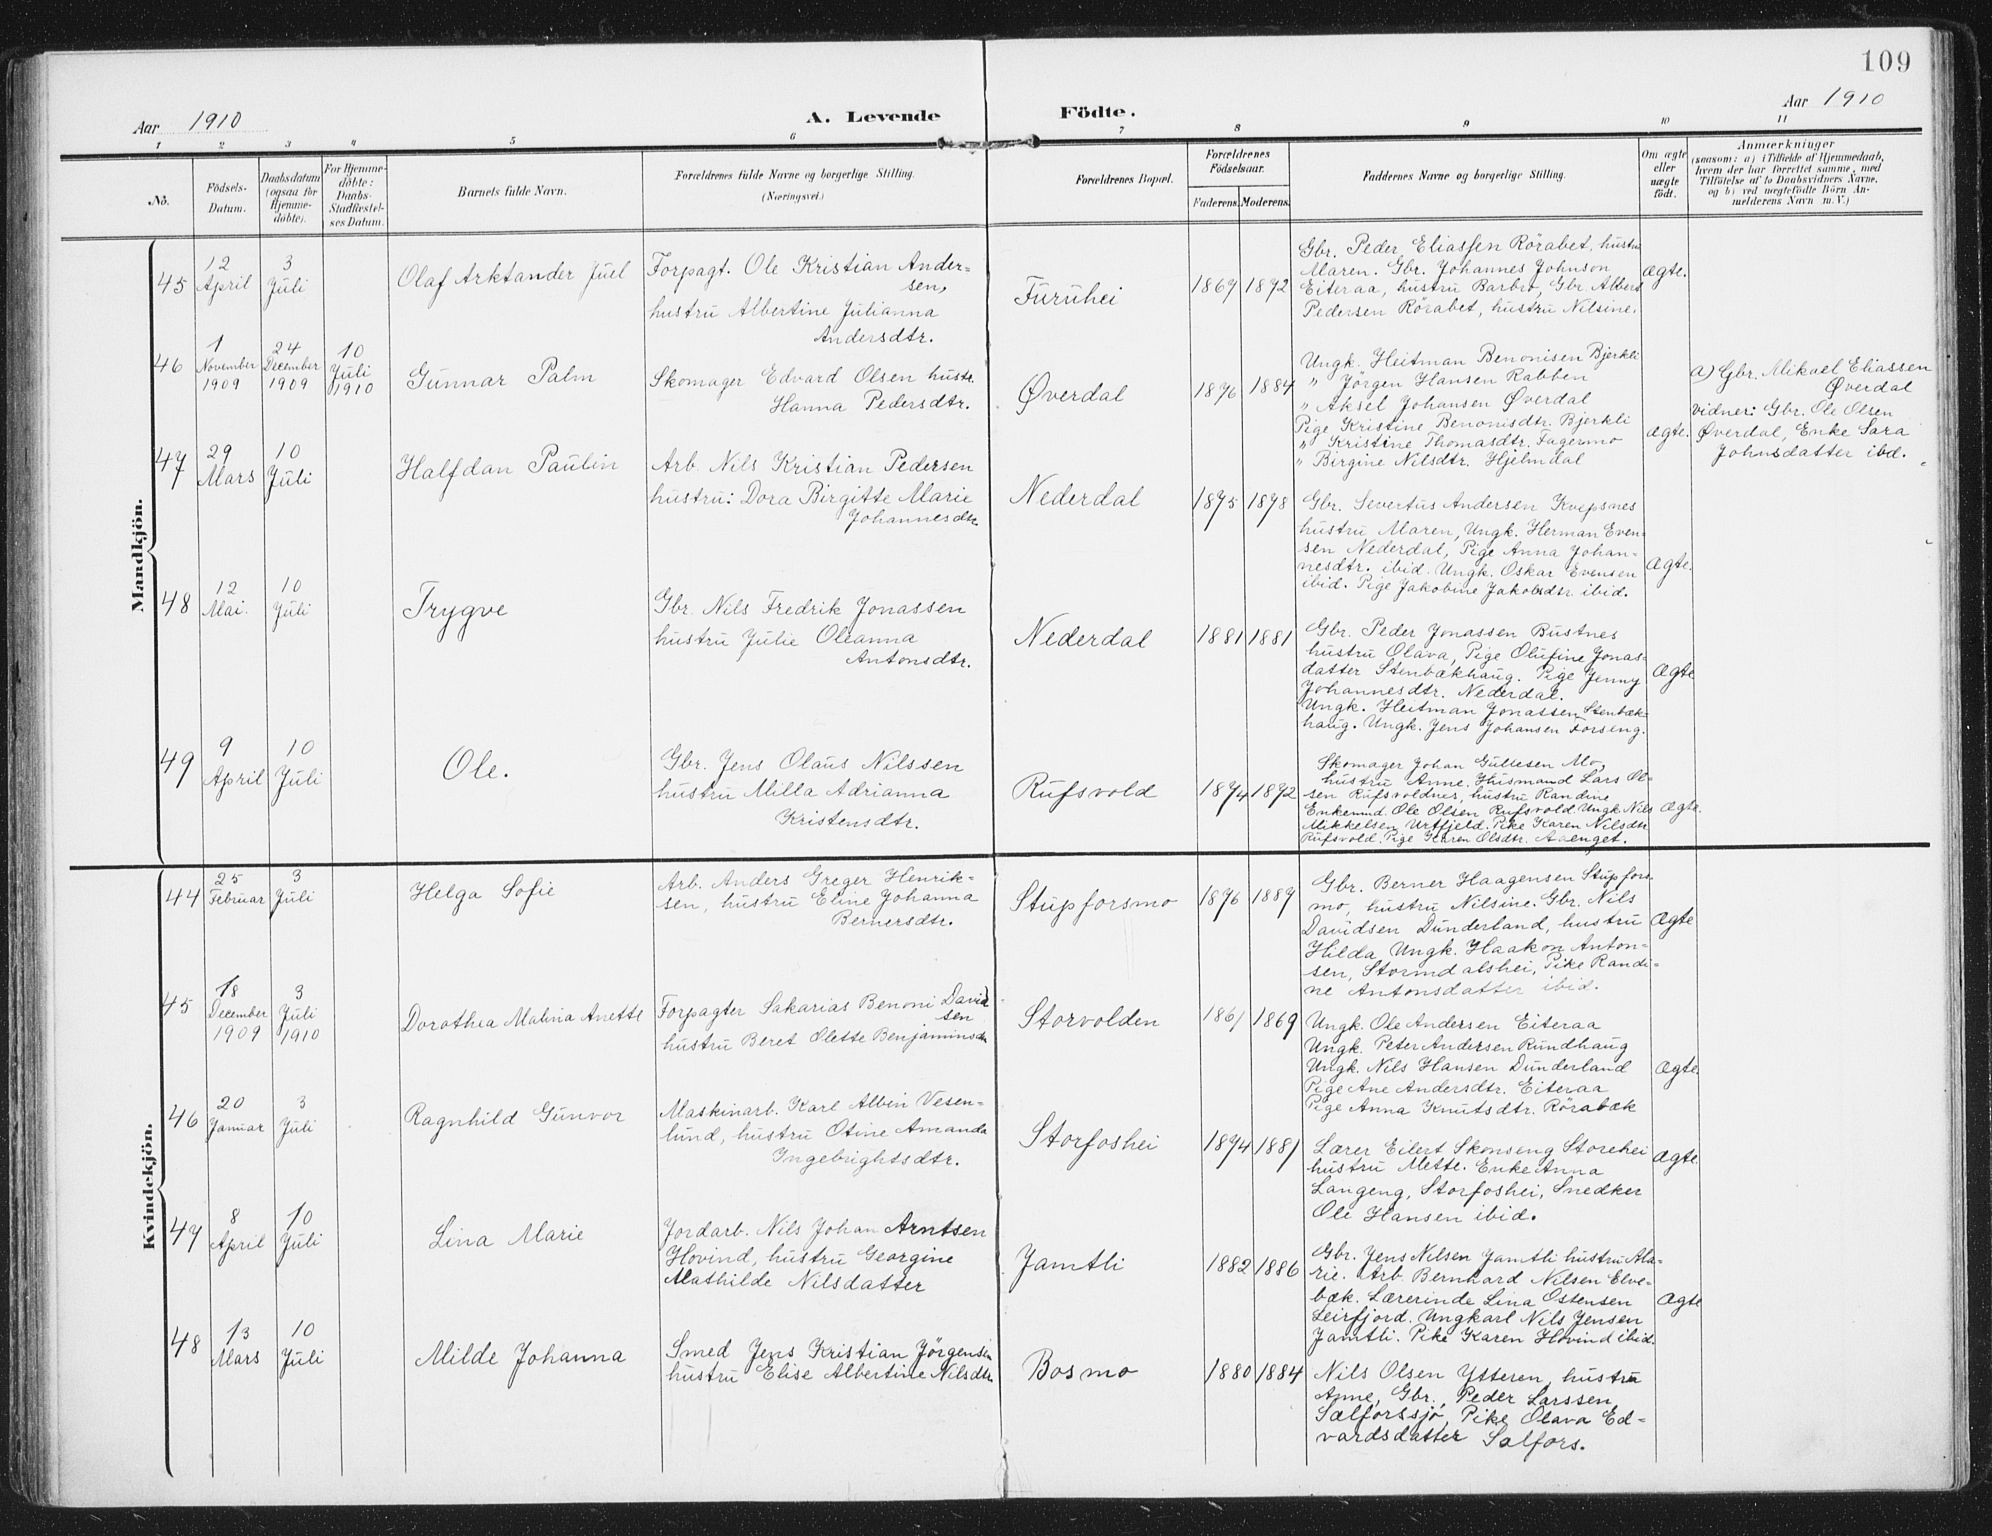 109
Aar 1910
A. Levende Födte.
Aar 1910
1 2 3 4 5 6 7 8 9 10 11
No.
Födsels-
Datum.
Daabsdatum
(ogsaa for
Hjemme-
døbte).
For Hjemme-
döbte:
Daabs-
Stadfæstel-
ses Datum.
Barnets fulde Navn.
Forældrenes fulde Navne og borgerlige Stilling.
(Næringsvei.)
Forældrenes Bopæl.
Forældrenes
Födselsaar.
Faderens. Moderens.
Faddernes Navne og borgerlige Stilling.
Om ægte
eller
uægte
födt.
Anmærkninger
(saasom: a) i Tilfælde af Hjemmedaab,
hvem der har forrettet samme, med
Tilföielse af to Daabsvidners Navne,
og b) ved uægtefödte Börn An-
melderens Navn m.V.)
Mandkjön.
45
12
April
3
Juli
Olaf Arktander Juel
Forpagt. Ole Kristian Ander-
sen,
hustru Albertine Julianna
Andersdtr.
Furuhei
1869 1872
Gbr. Peder Eliassen Rörabet, hustru
Maren. Gbr. Johannes Johnson
Eiteraa, hustru Barbro, Gbr. Albert
Pedersen Rörabet, hustru Nilsine.
Ægte.
46
1
November
1909
24
December
1909
10
Juli
1910
Gunnar Palm
Skomager Edvard Olsen hustr.
Hanna Pedersdtr.
Øverdal
1876 1884
Ungk. Heitman Benonisen Bjerkli
" Jörgen Hansen Rabben
" Aksel Johansen Øverdal
Pige Kristine Benonisdtr. Bjerkli
" Kristine Thomasdtr. Fagermo
" Birgine Nilsdtr. Hjelmdal
Ægte.
a) Gbr. Mikael Eliassen
Øverdal
Vidner: Gbr. Ole Olsen
Øverdal, Enke Sara
Johnsdatter ibd.
47
29
Mars
10
Juli
Halfdan Paulin
Arb. Nils Kristian Pedersen
hustru: Dora Birgitte Marie
Johannesdtr
Nederdal
1875 1878
Gbr. Severtus Andersen Kvepsnes
hustru Maren, Ungk. Herman Even-
sen Nederdal, Pige Anna Johan-
nesdtr. ibid. Ungk. Oskar Evensen
ibid. Pige Jakobine Jakobsdtr ibid.
Ægte.
48
12
Mai.
10
Juli
Trygve
Gbr. Nils Fredrik Jonassen
hustru Julie Oleanna
Antonsdtr.
Nederdal
1881 1881
Gbr. Peder Jonassen Bustnes
hustru Olava, Pige Olufine Jonas-
datter Stenbækhaug. Pige Jenny
Johannesdtr. Nederdal.
Ungk. Heitman Jonassen Stenbæk-
haug. Ungk. Jens Johansen Forseng.
Ægte
49
9
April
10
Juli
Ole.
Gbr. Jens Olaus Nilssen
hustru Milla Adrianna
Kristensdtr.
Rufsvold
1874 1872
Skomager Johan Gullesen Mo,
hustru Anne. Husmand Lars Ol-
sen Rufsvoldnes, hustru Randine
Enkemd. Ole Olsen Rufsvold. Ungk. Nils
Mikkelsen Urtfjeld. Pike Karen Nilsdtr
Rufsvold. Pige Karen Olsdtr. Aaenget.
Ægte.
Kvindekjön.
44
25
Februar
3
Juli
Helga Sofie
Arb. Anders Greger Henrik-
sen, hustru Eline Johanna
Bernersdtr.
Stupforsmo
1876 1889
Gbr. Berner Haagensen Stupfors-
mo, hustru Nilsine. Gbr. Nils
Davidsen Dunderland, hustru
Hilda, Ungk. Haakon Anton-
sen, Stormdalshei, Pike Randi-
ne Antonsdatter ibid.
Ægte
45
18
December
1909
3
Juli
1910
Dorathea Malvina Anette
Forpagter Sakarias Benoni David
sen
hustru Beret Olette Benjaminsdtr
Storvolden
1861 1869
Ungk. Ole Andersen Eiteraa
Ungk. Peter Andersen Rundhaug
Ungk. Nils Hansen Dunderland
Pige Ane Andersdtr. Eiteraa
Pige Anna Knutsdtr. Rörabæk
Ægte.
46
20
Januar
3
Juli
Ragnhild Gunvor
Maskinarb. Karl Albin Vesen-
lund, hustru Otine Amanda
Ingebrightsdtr.
Storfoshei
1874 1881
Lærer Eilert Skonseng Storehei
hustru Mette. Enke Anna
Langeng, Storfoshei, Snedker
Ole Hansen ibid.
Ægte
47
8
April
10
Juli
Lina Marie
Jordarb. Nils Johan Arntsen
Hovind, hustru Georgine
Mathilde Nilsdatter
Jamtli
1882 1886
Gbr. Jens Nilsen Jamtli hustru Ma-
rie. Arb. Bernhard Nilsen Elve-
bæk. Lærerinde Lina Ostensen
Leirfjord. Ungkarl Nils Jensen
Jamtli. Pike Karen Hovind ibid.
Ægte
48
13
Mars
10
Juli
Milde Johanna
Smed Jens Kristian Jörgensen
hustru Elise Albertine Nilsdtr
Bosmo
1880 1884
Nils Olsen Ytteren, hustru
Anne, Gbr. Peder Larssen
Salforssjö, Pike Olava Ed-
vardsdatter Salfors.